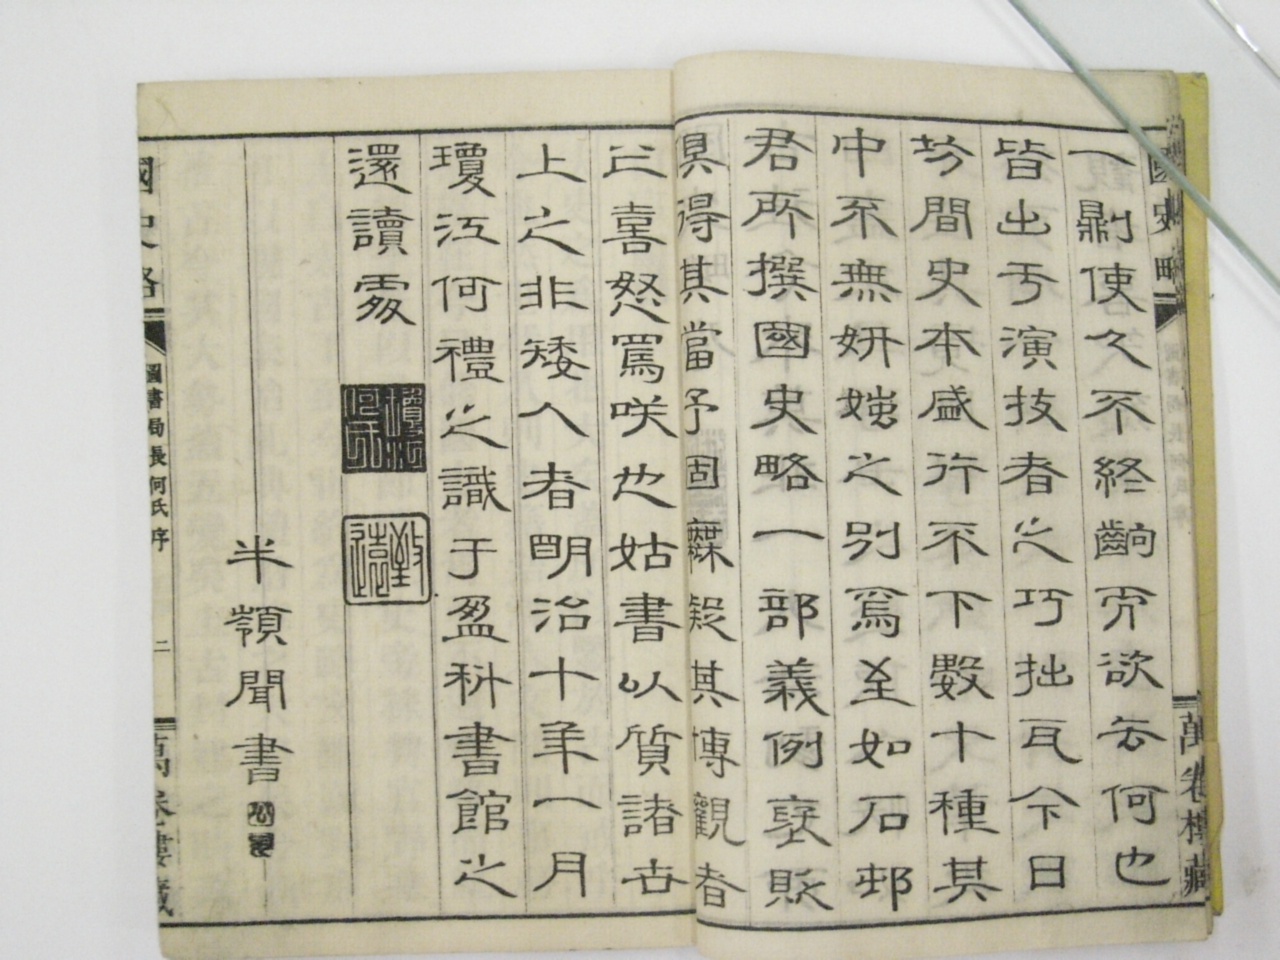 國史略
萬卷樓藏
一則使人不終齣而欲去何也
皆出于演技者之巧拙耳今日
坊間史本盛行不下數十種其
中不無妍媸之別焉至如石邨
君所撰國史略一部義例褒貶
具得其當予固無疑其博觀者
之喜怒罵咲也姑書以質諸世
上之非矮人者明治十年一月
瓊江何禮之識于盈科書館之
還讀處
半嶺聞書
國史略
圖書局長何氏序
二
萬卷樓藏